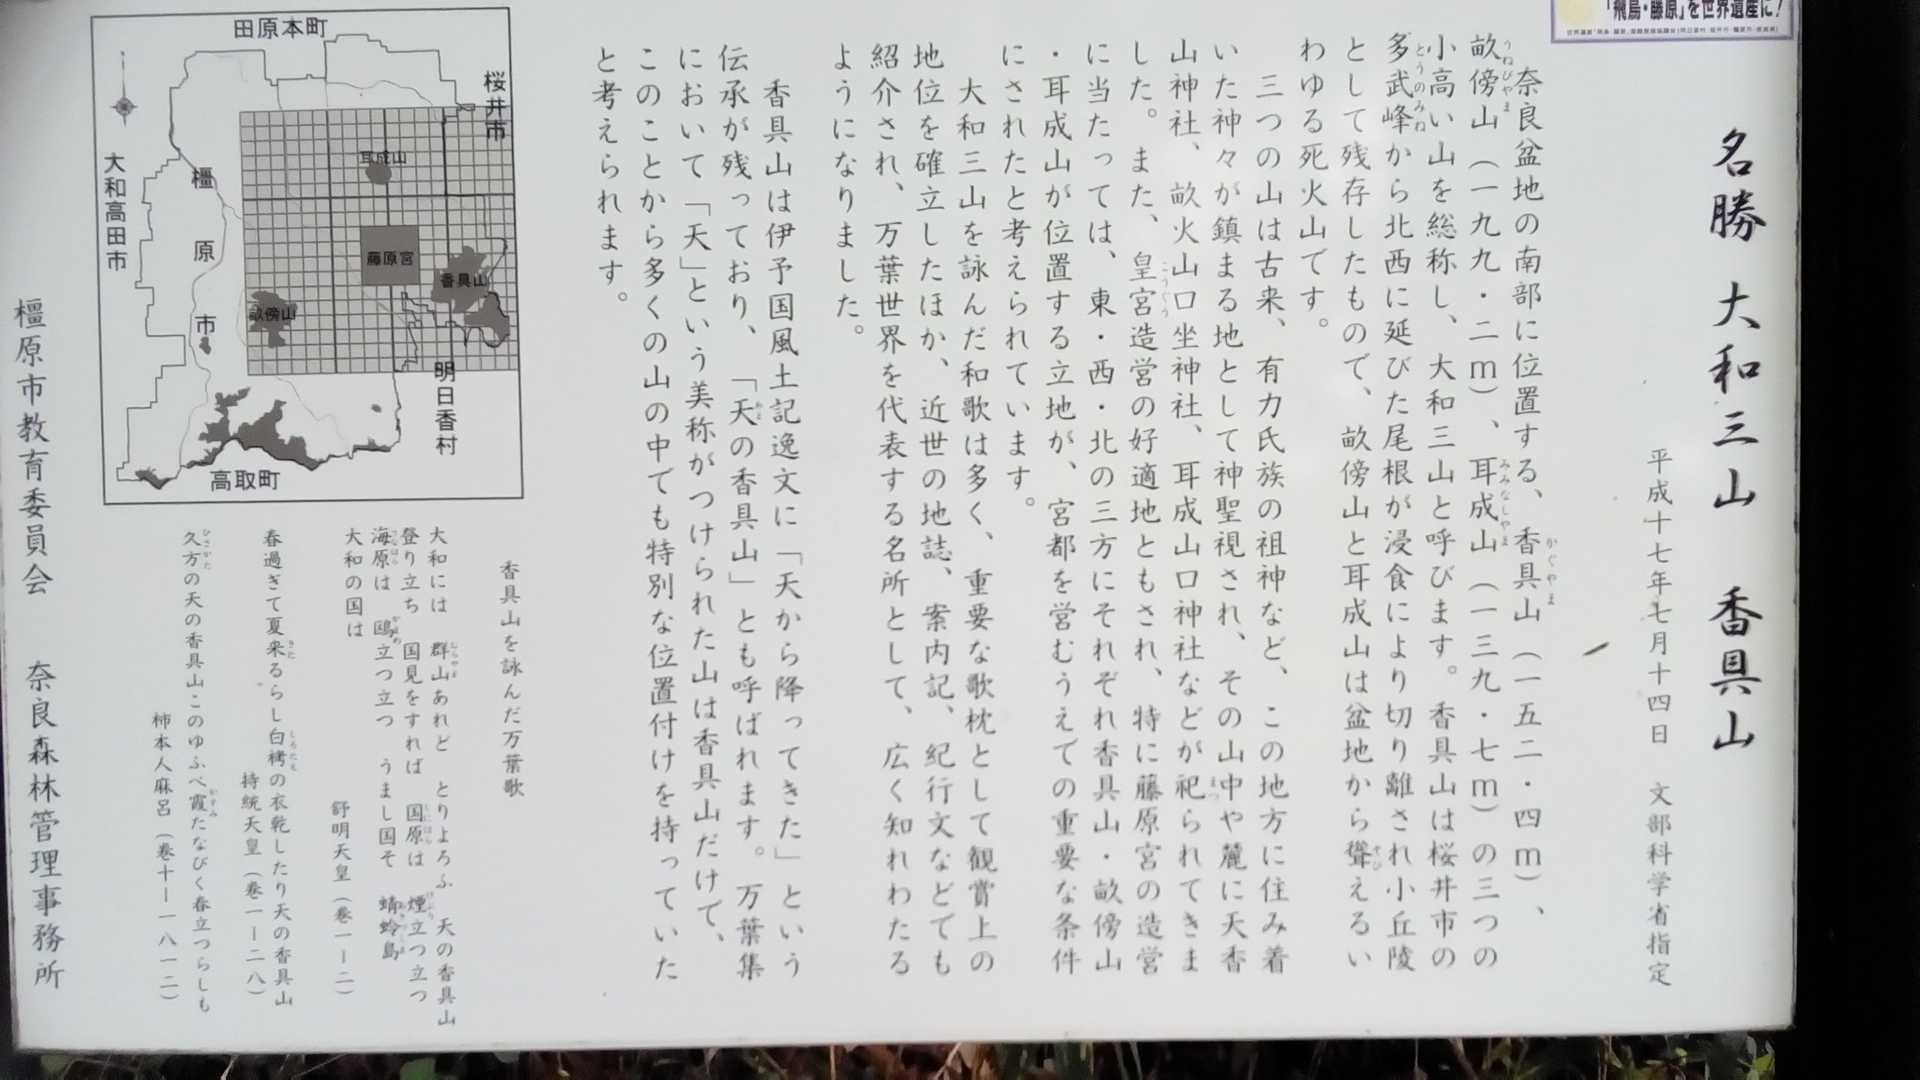 「飛鳥・藤原」を世界遺産に！
名勝 大和三山 香具山
平成十七年七月十四日 文部科学省指定
奈良盆地の南部に位置する、香具山（一五二・四ｍ）、
畝傍山（一九九・二ｍ）、耳成山（一三九・七ｍ）の三つの
小高い山を総称し、大和三山と呼びます。香具山は桜井市の
多武峰から北西に延びた尾根が浸食により切り離され小丘陵
として残存したもので、畝傍山と耳成山は盆地から聳えるい
わゆる死火山です。
三つの山は古来、有力氏族の祖神など、この地方に住み着
いた神々が鎮まる地として神聖視され、その山中や麓に天香
山神社、畝火山口坐神社、耳成山口神社などが祀られてきま
した。また、皇宮造営の好適地ともされ、特に藤原宮の造営
に当たっては、東・西・北の三方にそれぞれ香具山・畝傍山
・耳成山が位置する立地が、宮都を営むうえでの重要な条件
にされたと考えられています。
大和三山を詠んだ和歌は多く、重要な歌枕として観賞上の
地位を確立したほか、近世の地誌、案内記、紀行文などでも
紹介され、万葉世界を代表する名所として、広く知れわたる
ようになりました。
香具山は伊予国風土記逸文に「天から降ってきた」という
伝承が残っており、「天の香具山」とも呼ばれます。万葉集
において「天」という美称がつけられた山は香具山だけで、
このことから多くの山の中でも特別な位置付けを持っていた
と考えられます。
田原本町
桜井市
大和高田市
橿原市
耳成山
藤原宮
香具山
畝傍山
明日香村
高取町
香具山を詠んだ万葉歌
大和には 群山あれど とりよろふ 天の香具山
登り立ち 国見をすれば 国原は 煙立つ立つ
海原は 鷗立つ立つ うまし国そ 蜻蛉島
大和の国は
舒明天皇（巻一ー二）
春過ぎて夏来るらし白栲の衣乾したり天の香具山
持統天皇（巻一ー二八）
久方の天の香具山このゆふべ霞たなびく春立つらしも
柿本人麻呂（巻十ー一八一二）
橿原市教育委員会 奈良森林管理事務所